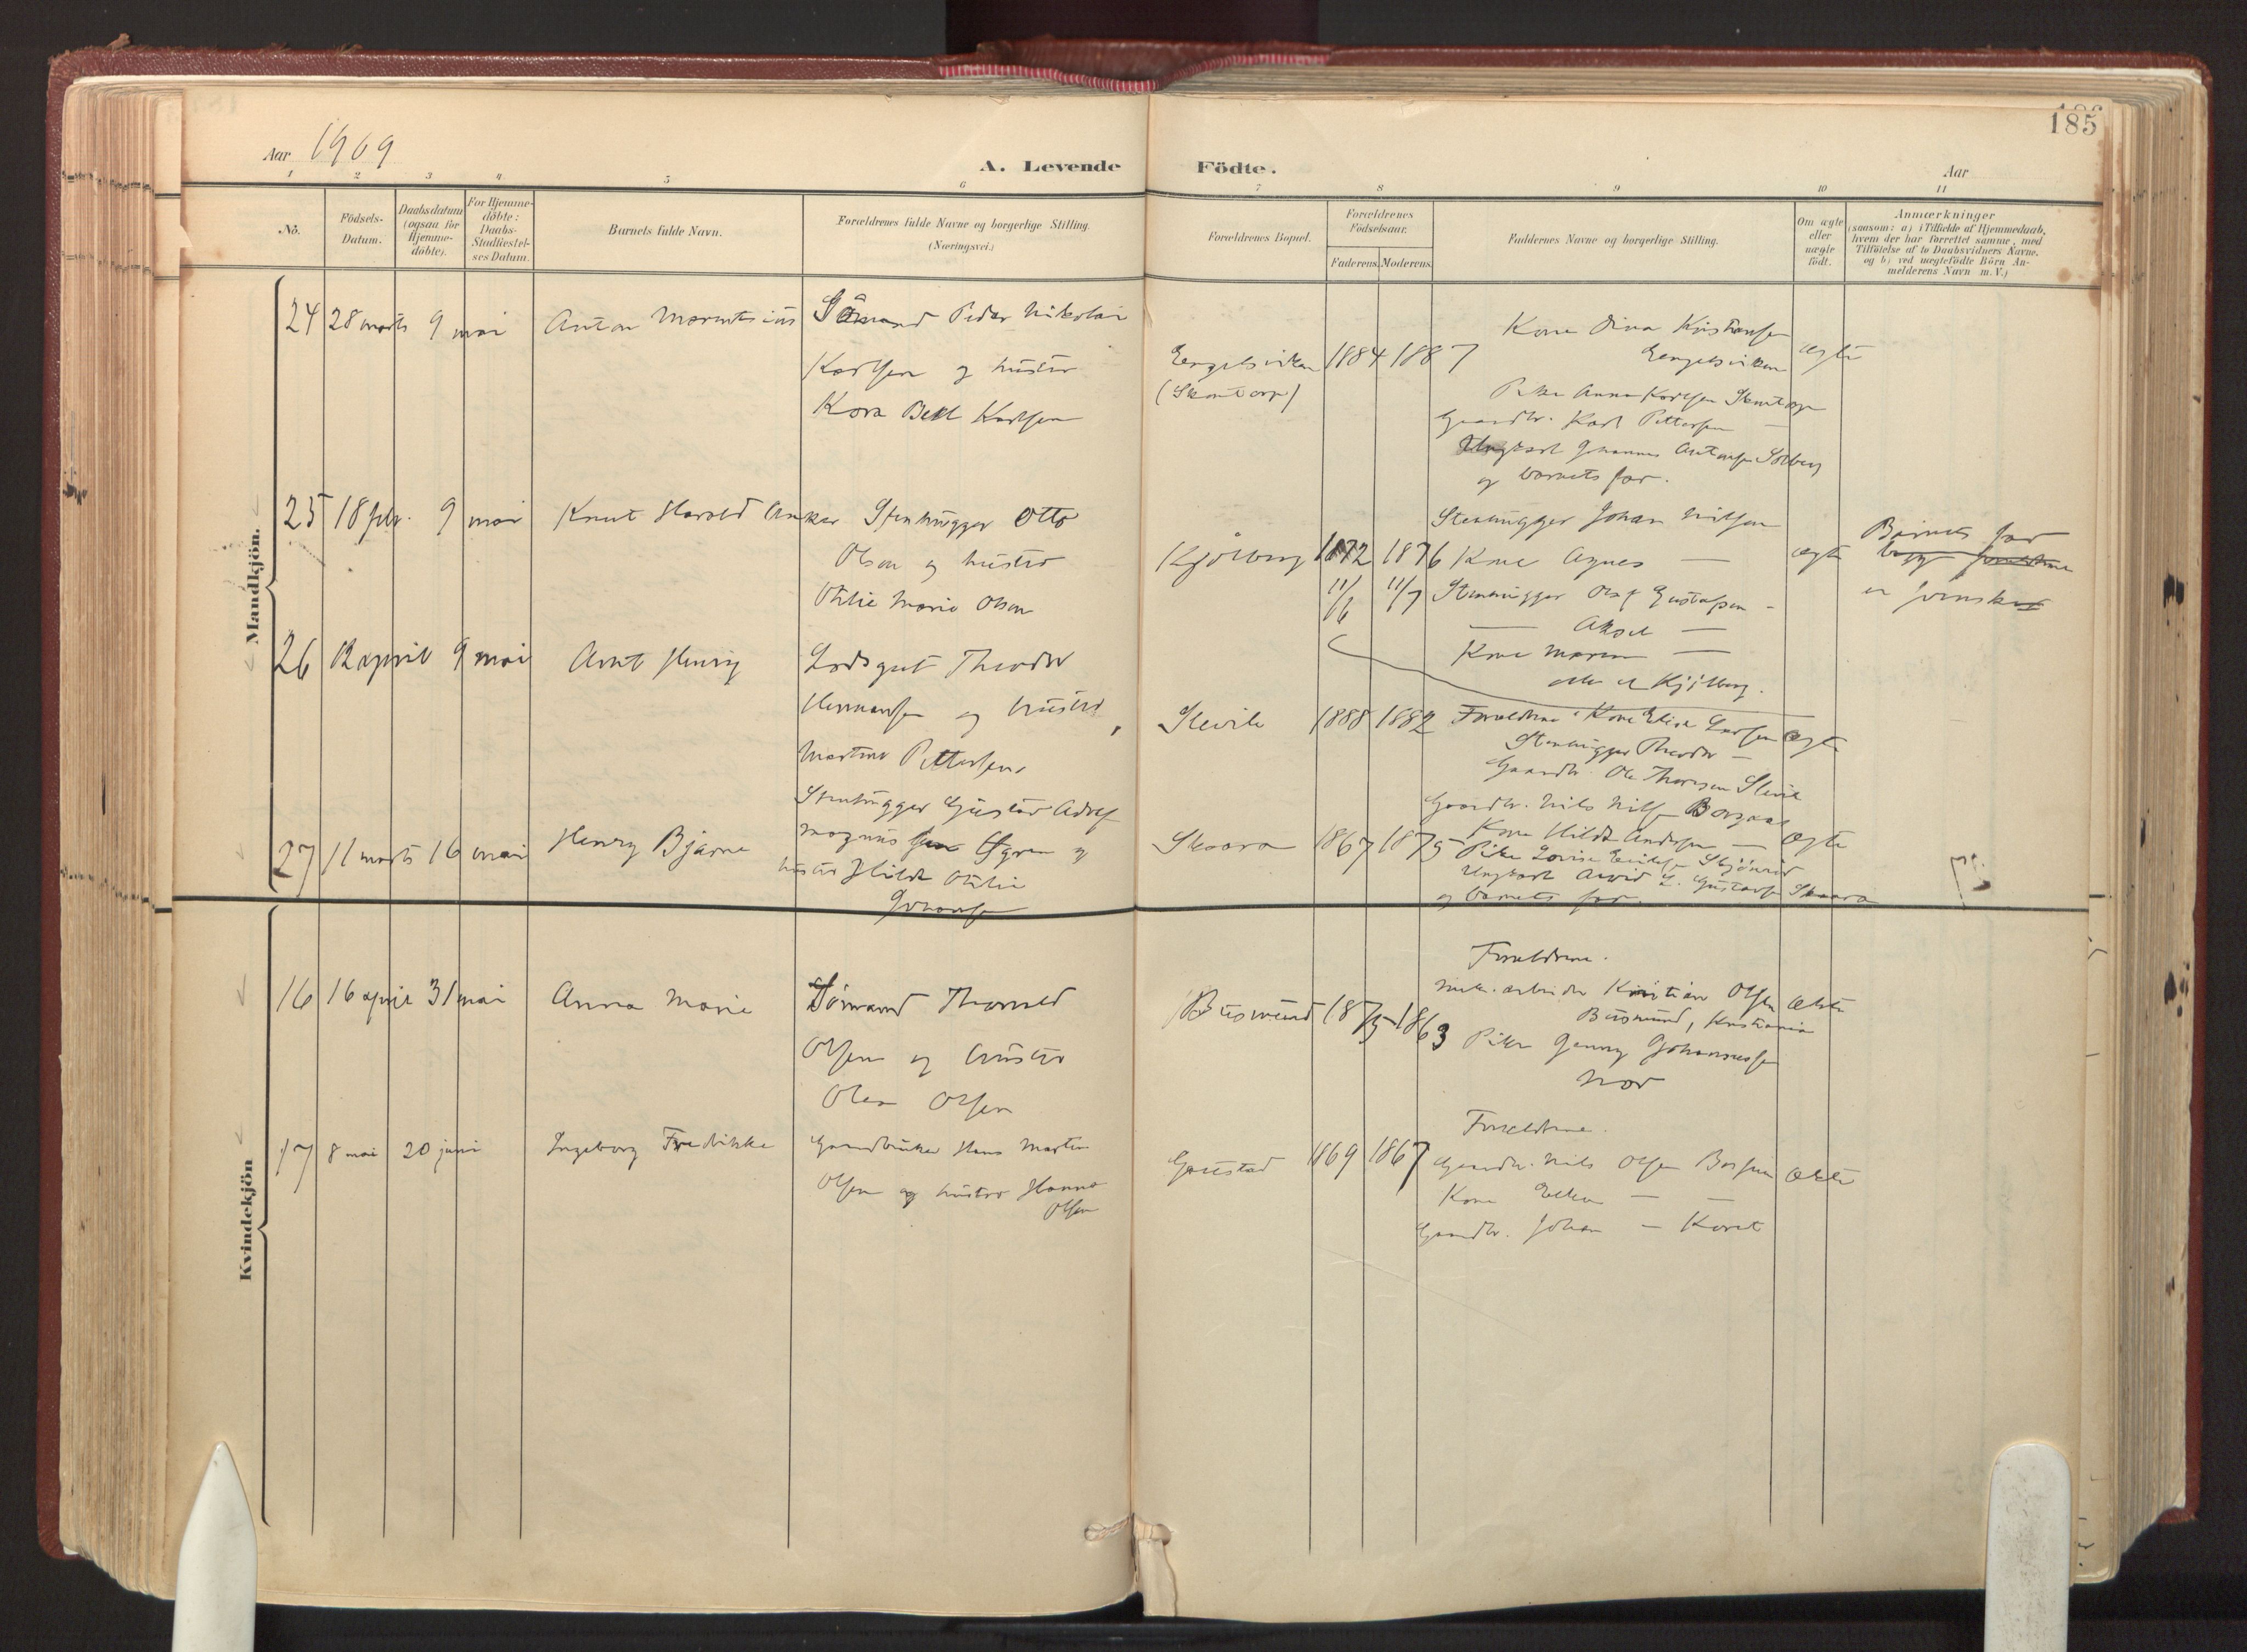 185
Aar 1909
A. Levende Födte.
Aar
1 2 3 4 5 6 7 8 9 10 11
No.
Födsels-Datum.
Daabsdatum (ogsaa for Hjemme-döbte).
For Hjemme-döbte: Daabs-Stadfæstel-ses Datum.
Barnets fulde Navn.
Forældrenes fulde Navne og borgerlige Stilling.
(Næringsvei.)
Forældrenes Bopæl.
Forældrenes Födselsaar.
Faderens. Moderens.
Faddernes Navne og borgerlige Stilling.
Om ægte eller uægte födt.
Anmærkninger
(saasom: a) i Tilfælde af Hjemmedaab,
hvem der har forrettet samme, med
Tilföielse af to Daabsvidners Navne.
og b) ved uægtefödte Börn An-
melderens Navn m. V.)
Mandkjön.
24 28 marts 9 mai Anton
Sömand Peder Nikolai
Karlsen og hustru
Kara Karlsen
Engelsviken
1884 1887
Kone Dina Kristiansen
Engelsviken
ægte
Pike Anna Karlsen
Gaardbr. Karl Pettersen —
Ungkarl Johannes Antonsen Solberg
og barnets far.
25 18 febr. 9 mai Knut Harald Anker
Stenhugger Otto
Olsen og hustru
Otilie Marie Olsen
Kjölberg
1872 1876
11/6 11/7
Stenhugger Johan Nilsen
Kone Agnes —
ægte
Stenhugger Olaf Gustafsen —
— Aksel —
Kone Maren —
alle af Kjölberg.
Barnets far
er svensk
26 12 april 9 mai Arnt Henry
Losgut Theodor
Hermansen og hustru
Martine Pettersen
Slevik
1888 1882
Forældrene. Kone Elise Larsen
ægte
Stenhugger Theodor —
Gaardbr. Ole Thoresen Slevik
Gaardbr. Nils Nilsen
27 11 marts 16 mai Henry Bjarne
Stenhugger Gustav Adolf
Magnus og
hustru Hilda Otilie
Johansen
Skaara
1867 1875
Kone Hilda Andersen —
ægte
Pike Lovise
Ungkarl Arvid Gustavsen Skaara
og barnets far.
Kvindekjön
16 16 april 31 mai Anna Marie
Sömand Thorvald
Olsen og hustru
Olea Olsen
Busmund
1875 1863
Forældrene.
mek. arbeider Kristian Olsen
Busmund, Kristiania
ekte
Pike Jenny Johannessen
Nor
17 8 mai 20 juni Ingeborg Fredrikke
Gaardbruker Hans Martin
Olsen og hustru Hanna
Olsen
Gaustad
1869 1867
Forældrene.
Gaardbr. Nils Olsen
ekte
Kone Ellen — —
Gaardbr. Johan —